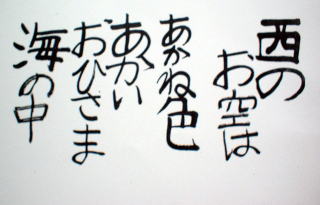 西の
お空は
あかね色
あかい
おひさま
海の中